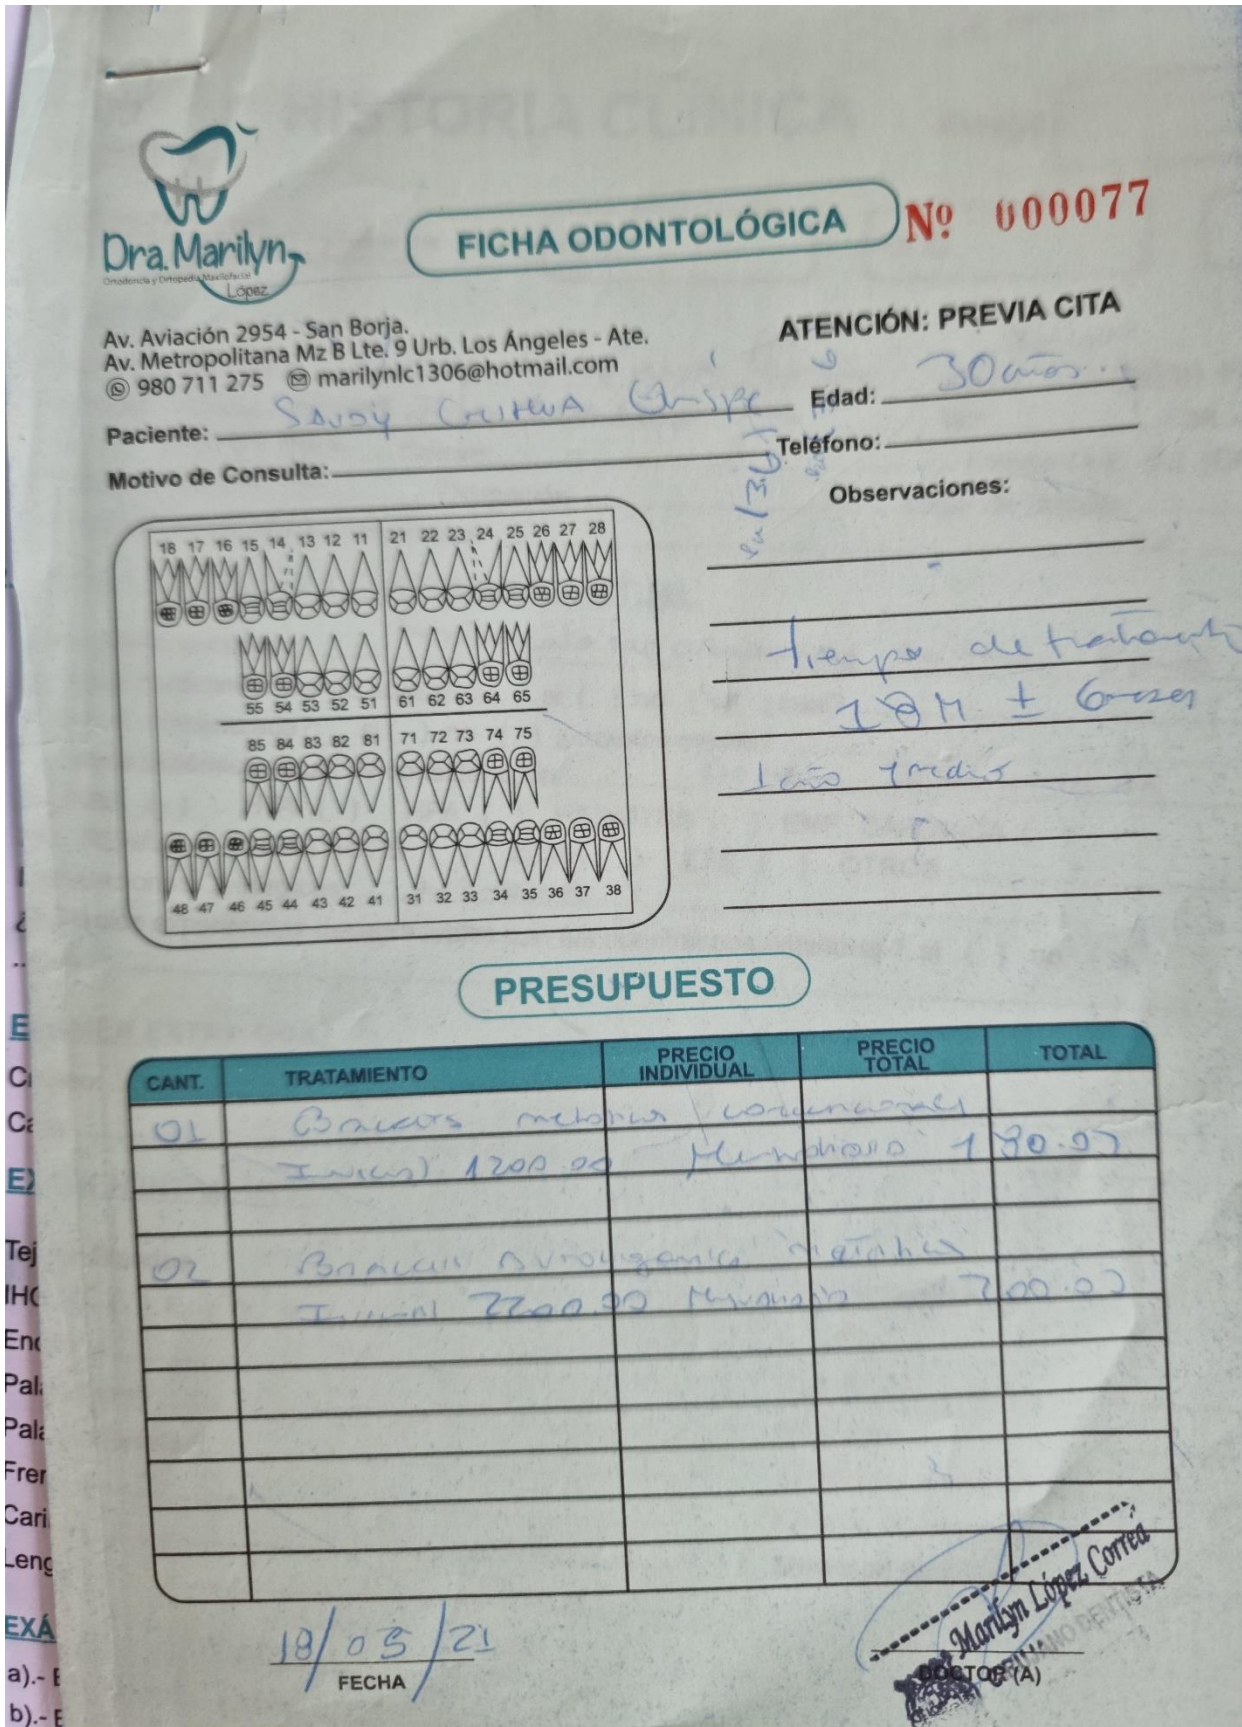 HISTORIA CLINICA
Dra. Marilyn
Ortodoncia y Ortopedia Maxilofacial
López
FICHA ODONTOLÓGICA
Nº 000077
Av. Aviación 2954 - San Borja.
Av. Metropolitana Mz B Lte. 9 Urb. Los Ángeles - Ate.
980 711 275 marilynlc1306@hotmail.com
ATENCIÓN: PREVIA CITA
Paciente: Quispe
Edad: 30 años
Motivo de Consulta:
Teléfono:
Observaciones:
18 17 16 15 14 13 12 11 21 22 23 24 25 26 27 28
55 54 53 52 51 61 62 63 64 65
85 84 83 82 81 71 72 73 74 75
48 47 46 45 44 43 42 41 31 32 33 34 35 36 37 38
tiempo de tratamiento
18 M ± 6 meses
1 año y medio
PRESUPUESTO
CANT. TRATAMIENTO PRECIO INDIVIDUAL PRECIO TOTAL TOTAL
01 Brackets metalicos convencionales
Inicial 1200.00 180.00
02 Brackets metalicos
Inicial 2200.00 200.00
18/05/21
FECHA
Marilyn López Correa
CIRUJANO DENTISTA
DOCTOR (A)
E
EX
Tej
Pala
Fren
Cari
Leng
EXÁ
a).- E
b).- E